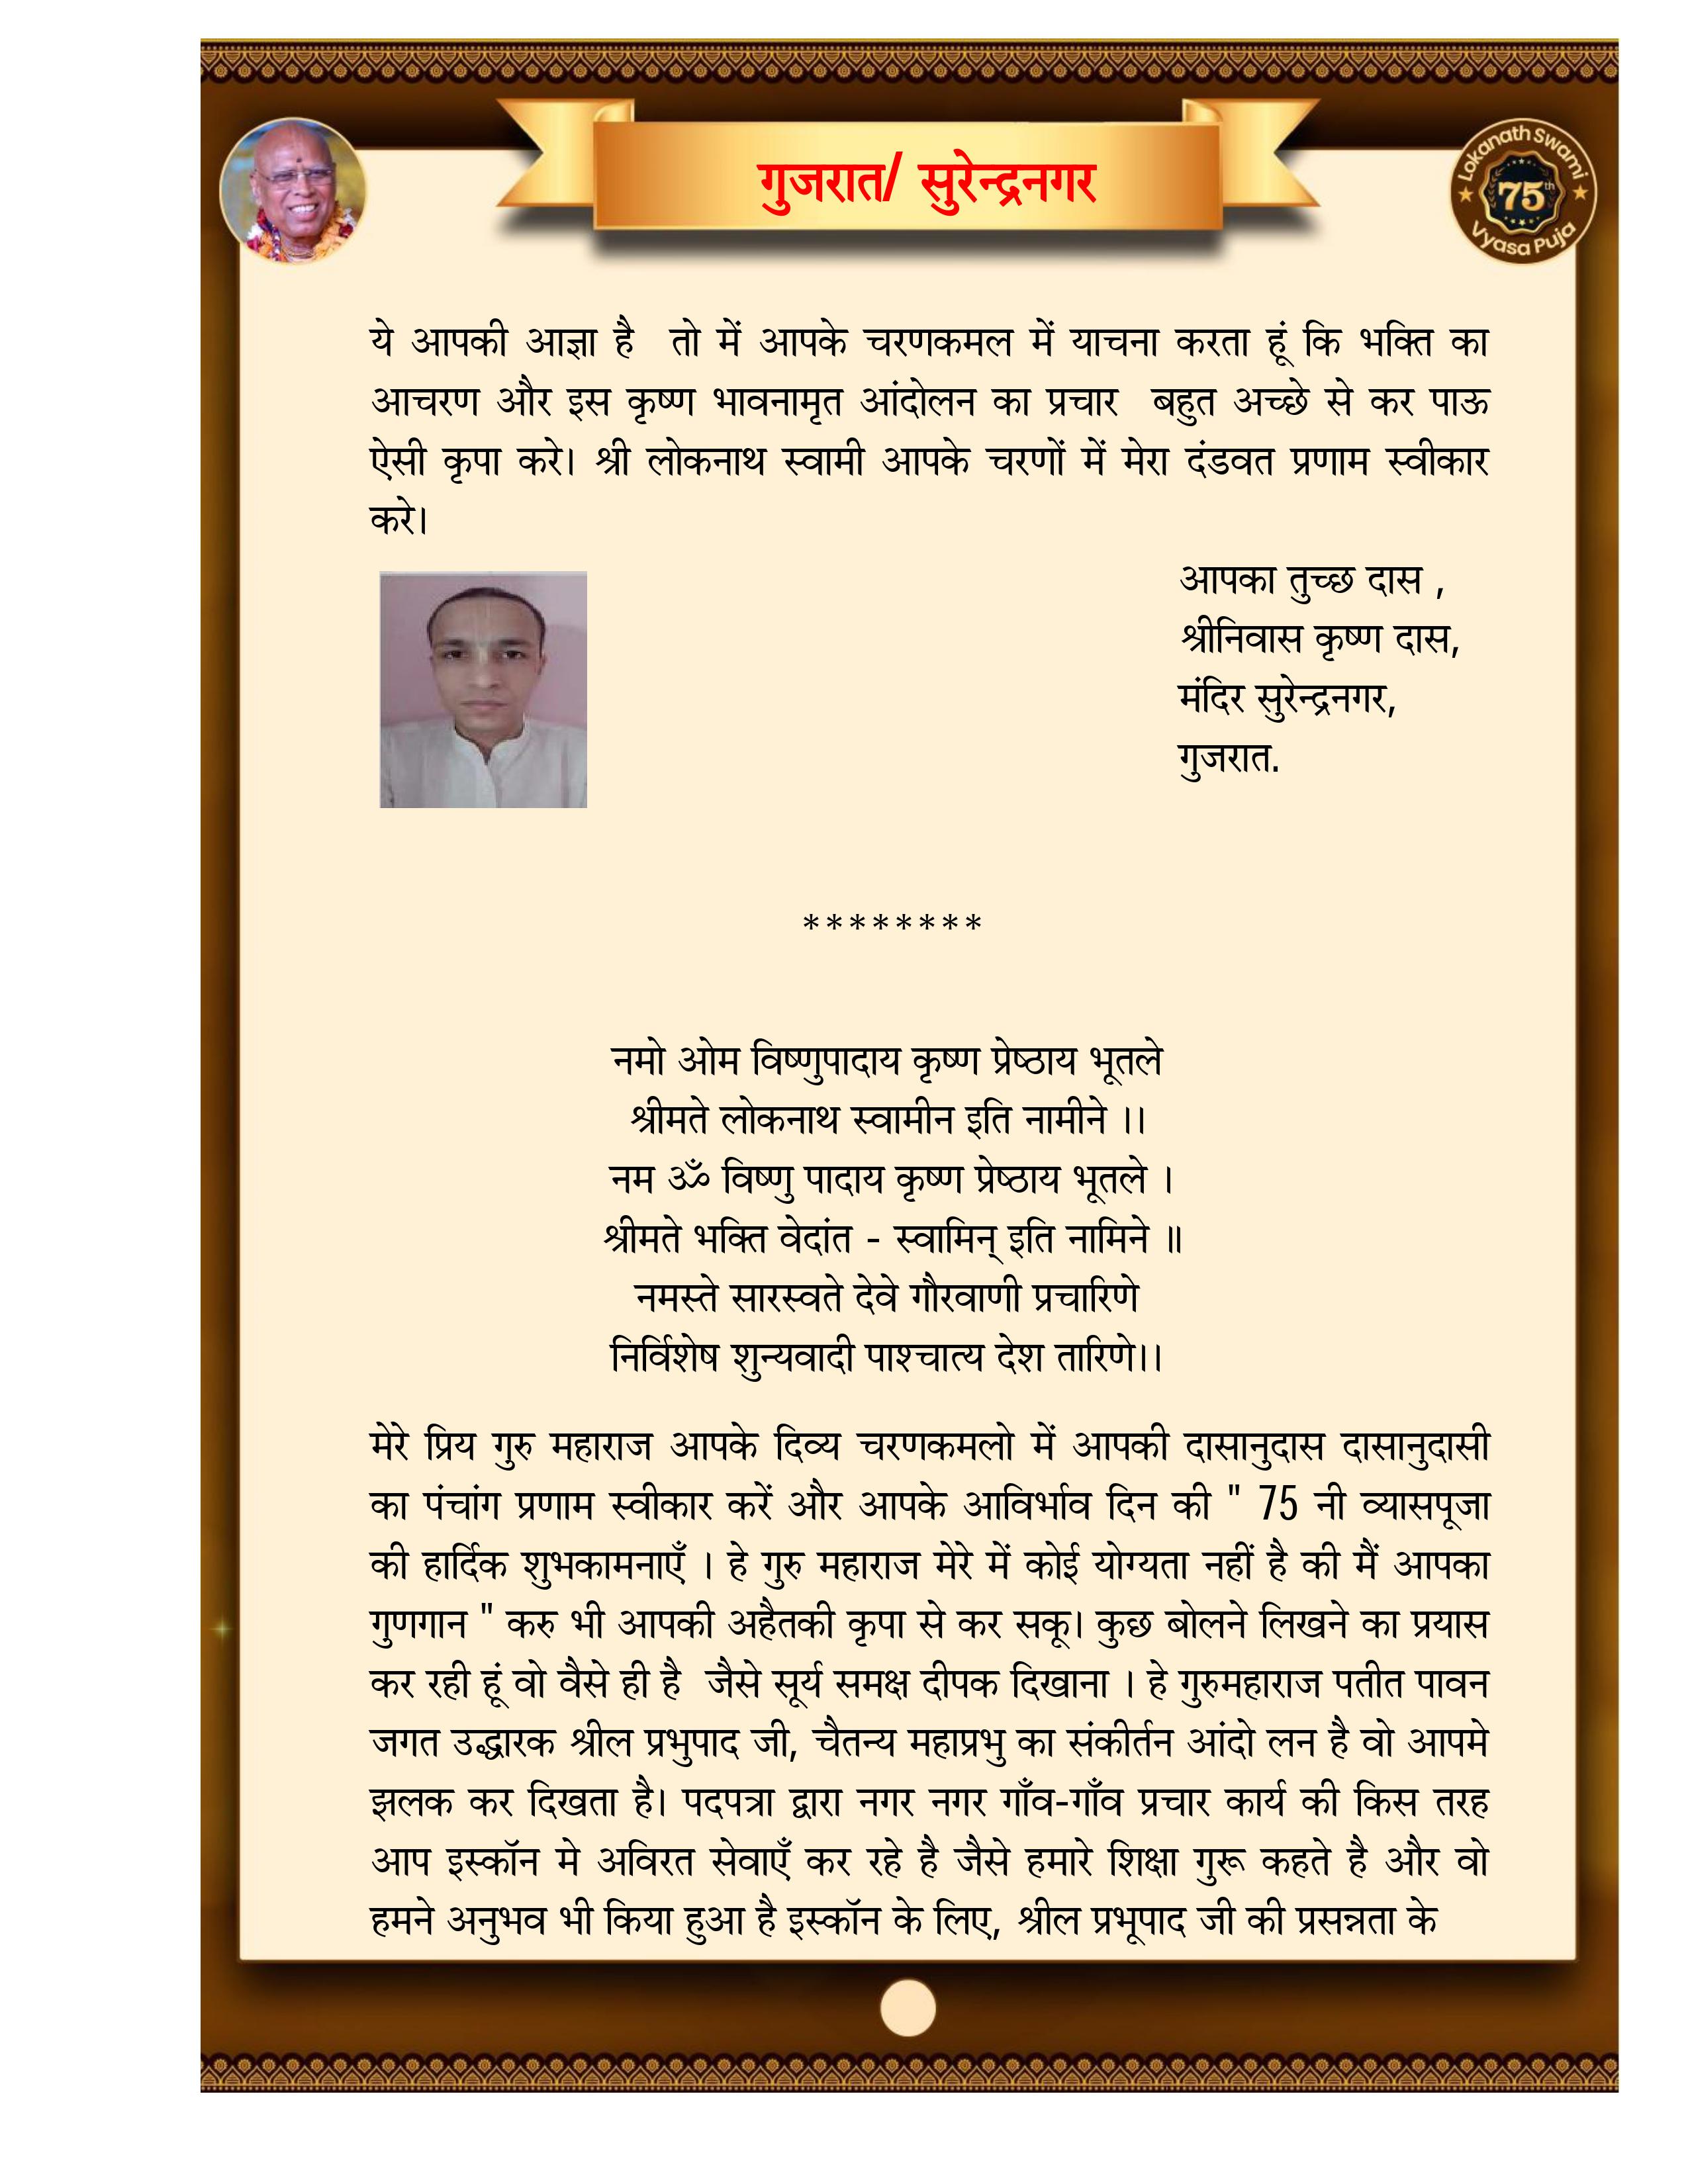 गुजरात/ सुरेन्द्रनगर
Lokanath Swami
75th
Vyasa Puja
ये आपकी आज्ञा है तो में आपके चरणकमल में याचना करता हूं कि भक्ति का
आचरण और इस कृष्ण भावनामृत आंदोलन का प्रचार बहुत अच्छे से कर पाऊ
ऐसी कृपा करे। श्री लोकनाथ स्वामी आपके चरणों में मेरा दंडवत प्रणाम स्वीकार
करे।
आपका तुच्छ दास ,
श्रीनिवास कृष्ण दास,
मंदिर सुरेन्द्रनगर,
गुजरात.
********
नमो ओम विष्णुपादाय कृष्ण प्रेष्ठाय भूतले
श्रीमते लोकनाथ स्वामीन इति नामीने ।।
नम ॐ विष्णु पादाय कृष्ण प्रेष्ठाय भूतले ।
श्रीमते भक्ति वेदांत - स्वामिन् इति नामिने ॥
नमस्ते सारस्वते देवे गौरवाणी प्रचारिणे
निर्विशेष शुन्यवादी पाश्चात्य देश तारिणे।।
मेरे प्रिय गुरु महाराज आपके दिव्य चरणकमलो में आपकी दासानुदास दासानुदासी
का पंचांग प्रणाम स्वीकार करें और आपके आविर्भाव दिन की " 75 नी व्यासपूजा
की हार्दिक शुभकामनाएँ । हे गुरु महाराज मेरे में कोई योग्यता नहीं है की मैं आपका
गुणगान " करु भी आपकी अहैतकी कृपा से कर सकू। कुछ बोलने लिखने का प्रयास
कर रही हूं वो वैसे ही है जैसे सूर्य समक्ष दीपक दिखाना । हे गुरुमहाराज पतीत पावन
जगत उद्धारक श्रील प्रभुपाद जी, चैतन्य महाप्रभु का संकीर्तन आंदो लन है वो आपमे
झलक कर दिखता है। पदपत्रा द्वारा नगर नगर गाँव-गाँव प्रचार कार्य की किस तरह
आप इस्कॉन मे अविरत सेवाएँ कर रहे है जैसे हमारे शिक्षा गुरू कहते है और वो
हमने अनुभव भी किया हुआ है इस्कॉन के लिए, श्रील प्रभूपाद जी की प्रसन्नता के